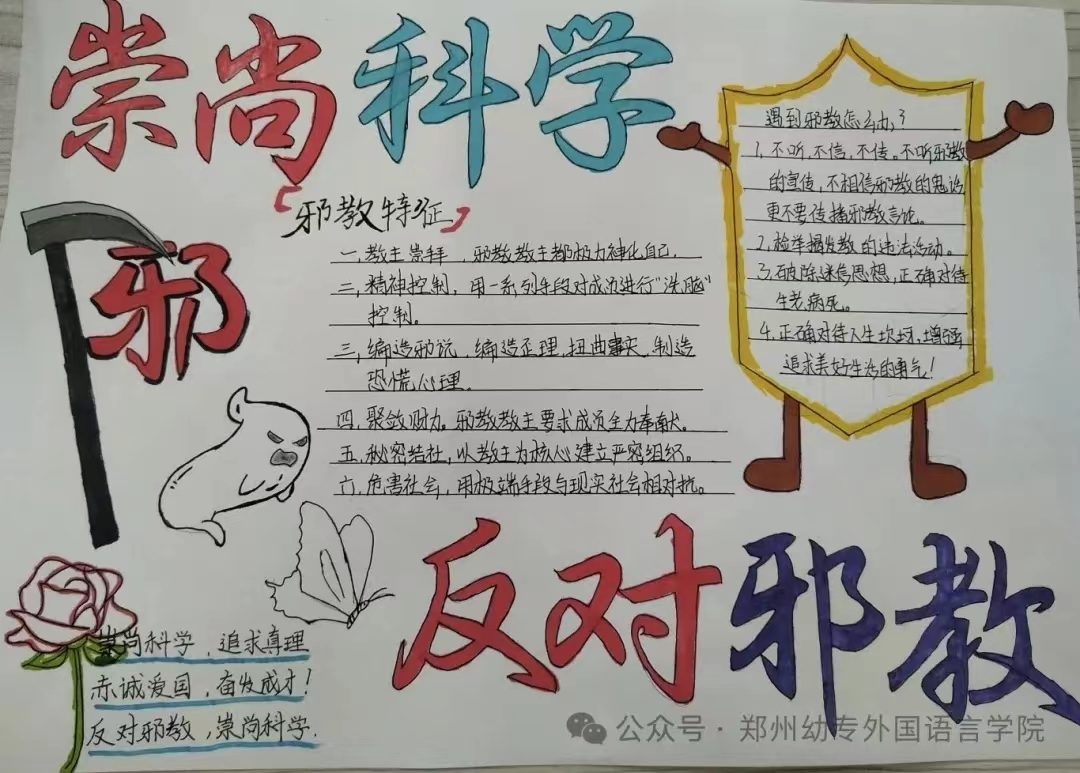 崇尚科学
「邪教特征」
邪
一、教主崇拜，邪教教主都极力神化自己.
二、精神控制，用一系列手段对成员进行"洗脑"
控制。
三、编造邪说，编造歪理，扭曲事实，制造
恐慌心理。
四、聚敛财力。邪教教主要求成员全力奉献。
五、秘密结社，以教主为核心建立严密组织。
六、危害社会，用极端手段与现实社会相对抗。
遇到邪教怎么办？
1、不听，不信，不传。不听邪教
的宣传，不相信邪教的鬼话
更不要传播邪教言论。
2、检举揭发教的违法活动。
3、破除迷信思想，正确对待
生老病死。
4、正确对待人生坎坷，增强
追求美好生活的勇气！
反对邪教
崇尚科学，追求真理
赤诚爱国，奋发成才！
反对邪教，崇尚科学.
公众号·郑州幼专外国语言学院